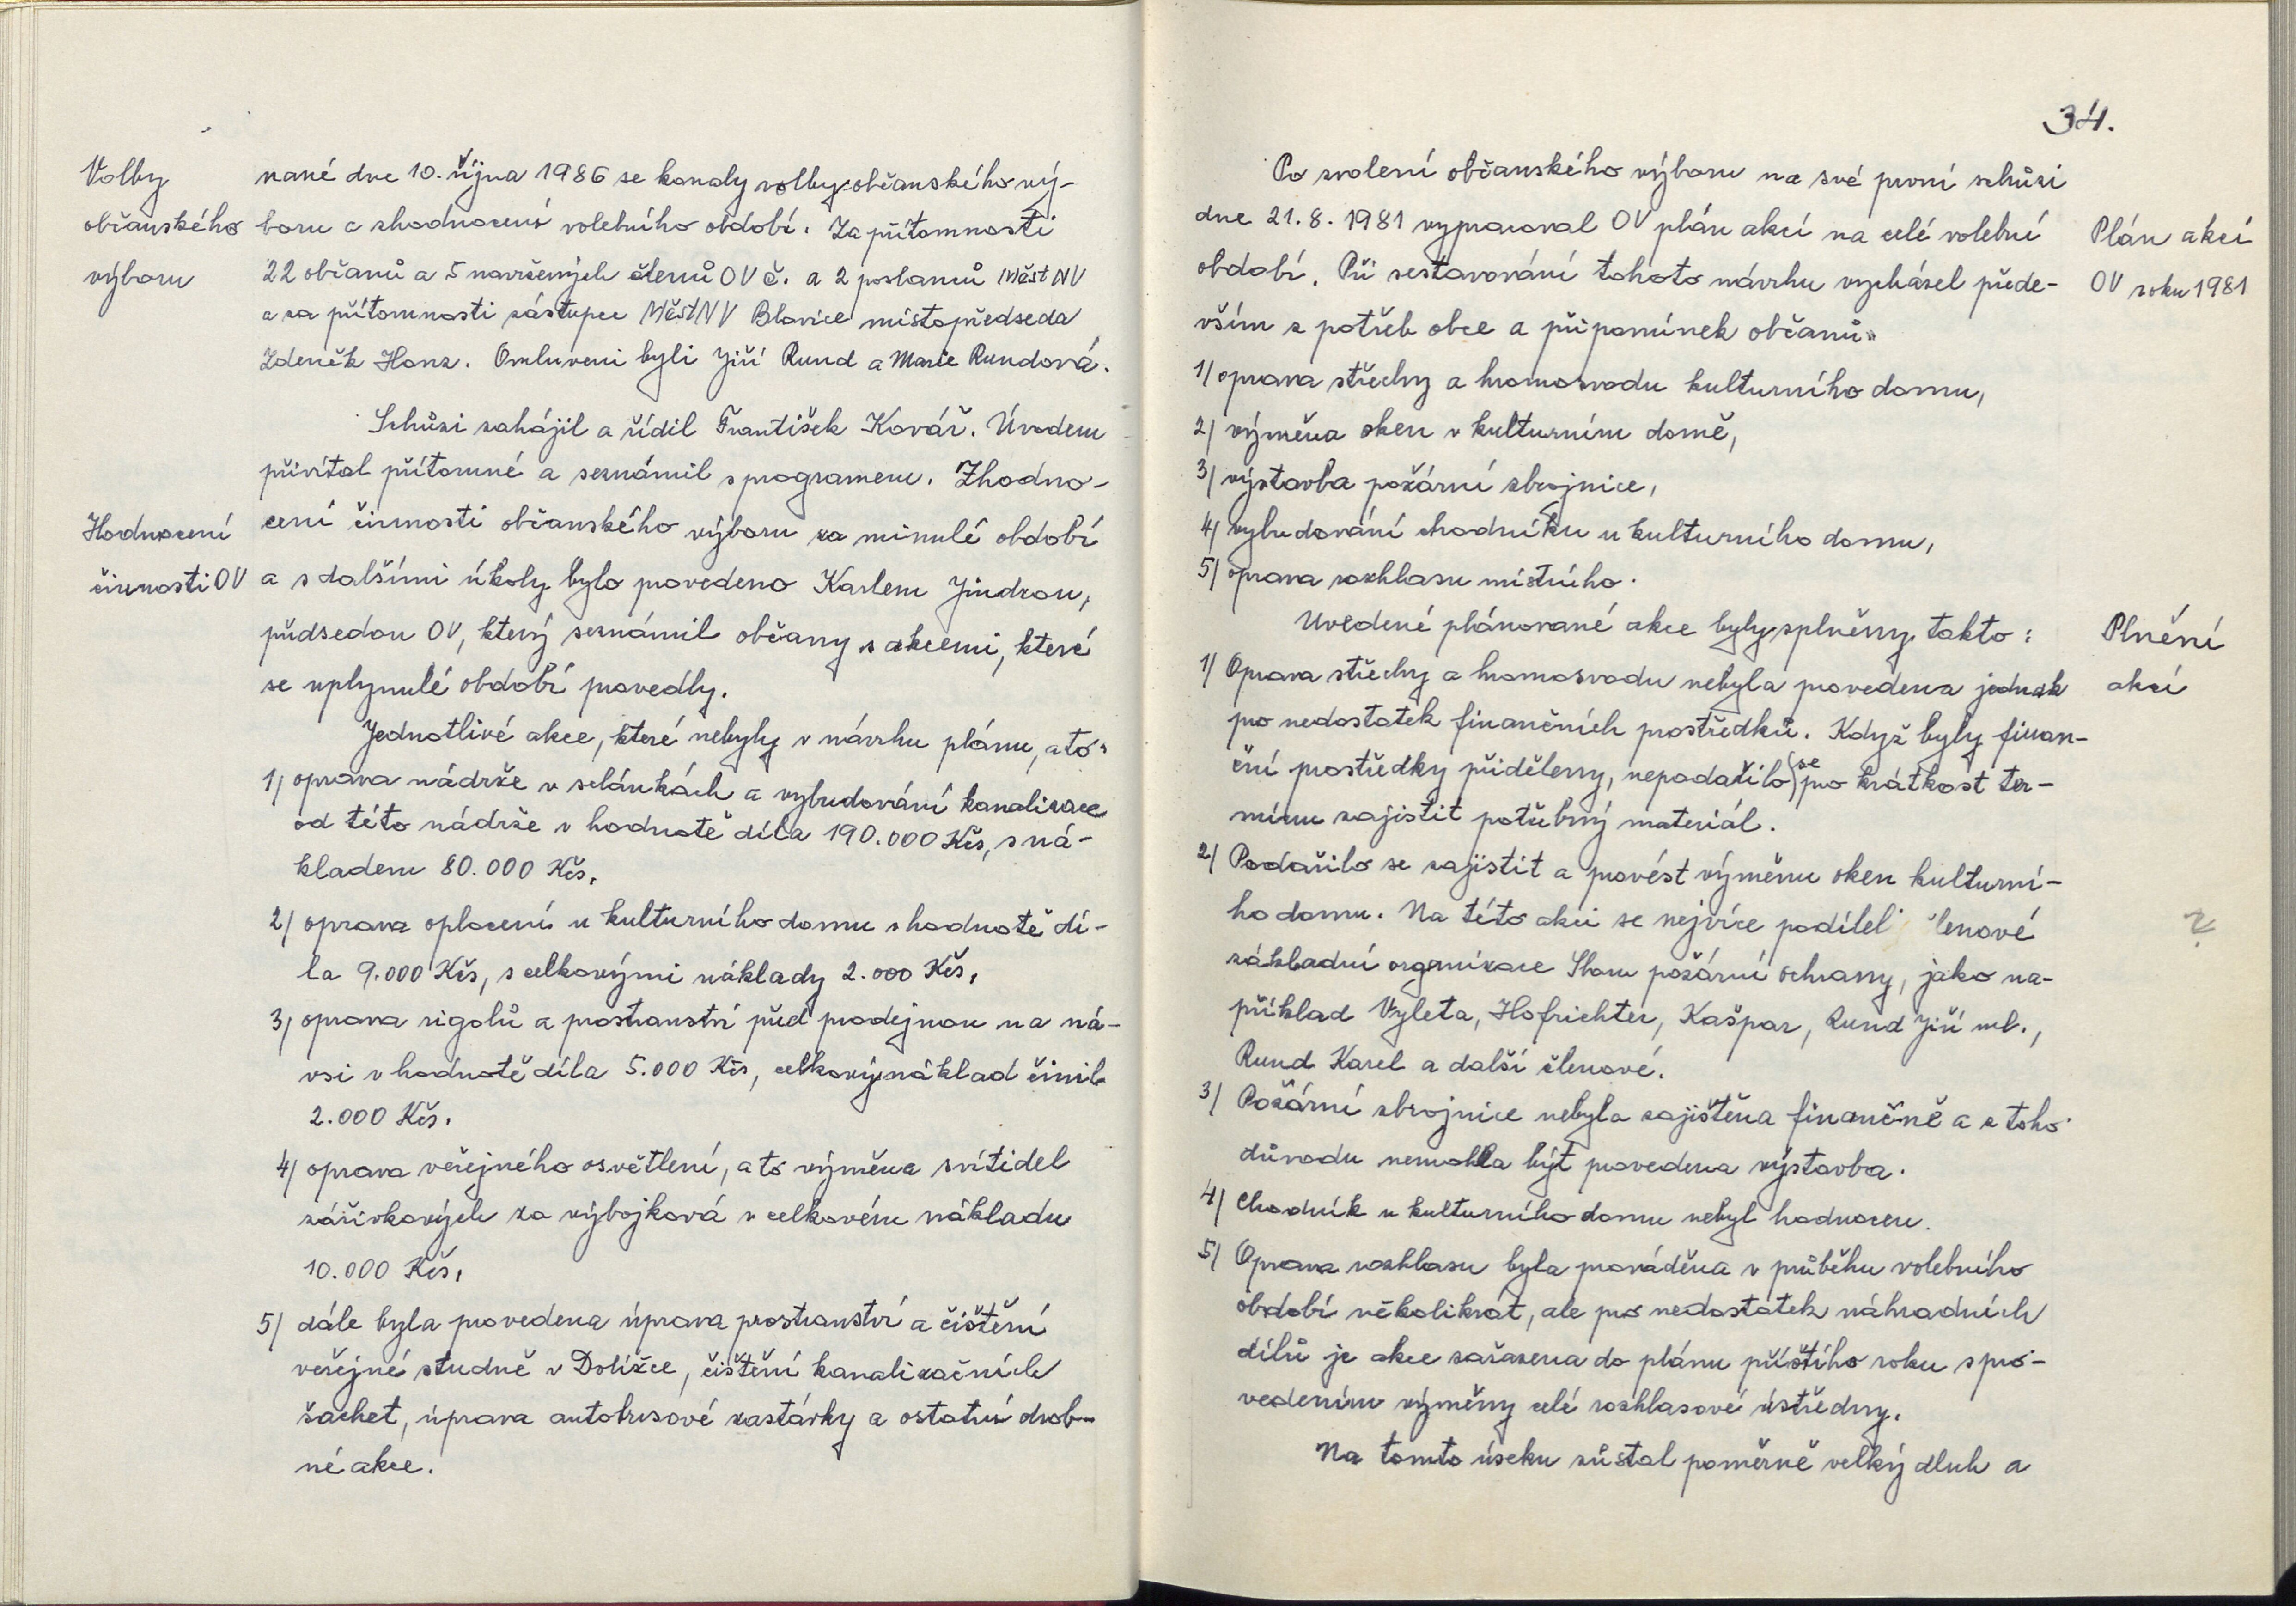 Volby
občanského
výboru
nané dne 10. října 1986 se konaly volby občanského vý-
boru a zhodnocení volebního období. Za přítomnosti
22 občanů a 5 navržených členů OV č. a 2 poslanců MěstNV
a za přítomnosti zástupce MěstNV Blovice místopředseda
Zdeněk Honz. Omluveni byli Jiří Rund a Marie Rundová.
Schůzi zahájil a řídil František Kovář. Úvodem
přivítal přítomné a seznámil s programem. Zhodno-
Hodnocení
činnosti OV
cení činnosti občanského výboru za minulé období
a s dalšími úkoly bylo provedeno Karlem Jindrou,
předsedou OV, který seznámil občany s akcemi, které
se uplynulé období provedly.
Jednotlivé akce, které nebyly v návrhu plánu, a to:
1) oprava nádrže v selánkách a vybudování kanalizace
od této nádrže v hodnotě díla 190.000 Kčs, s ná-
kladem 80.000 Kčs,
2) oprava oplocení u kulturního domu s hodnotě dí-
la 9.000 Kčs, s celkovými náklady 2.000 Kčs,
3) oprava rigolů a prostranství před prodejnou na ná-
vsi v hodnotě díla 5.000 Kčs, celkový náklad činil
2.000 Kčs,
4) oprava veřejného osvětlení, a to výměna svítidel
zářivkových za výbojková v celkovém nákladu
10.000 Kčs,
5) dále byla provedena úprava prostranství a čištění
veřejné studně v Dolížce, čištění kanalizačních
šachet, úprava autobusové zastávky a ostatní drob-
né akce.
34.
Po zvolení občanského výboru na své první schůzi
dne 21.8.1981 vypracoval OV plán akcí na celé volební
období. Při sestavování tohoto návrhu vycházel přede-
vším z potřeb obce a připomínek občanů:
Plán akcí
OV roku 1981
1) oprava střechy a hromosvodu kulturního domu,
2) výměna oken v kulturním domě,
3) výstavba požární zbrojnice,
4) vybudování chodníku u kulturního domu,
5) oprava rozhlasu místního.
Uvedené plánované akce byly splněny takto:
Plnění
akcí
1) Oprava střechy a hromosvodu nebyla provedena jednak
pro nedostatek finančních prostředků. Když byly finan-
ční prostředky přiděleny, nepodařilo se pro krátkost ter-
mínu zajistit potřebný materiál.
2) Podařilo se zajistit a provést výměnu oken kulturní-
ho domu. Na této akci se nejvíce podílel členové
?
základní organizace Sboru požární ochrany, jako na-
příklad Vyleta, Hofrichter, Kašpar, Rund Jiří ml.,
Rund Karel a další členové.
3) Požární zbrojnice nebyla zajištěna finančně a z toho
důvodu nemohla být provedena výstavba.
4) Chodník u kulturního domu nebyl hodnocen.
5) Oprava rozhlasu byla prováděna v průběhu volebního
období několikrát, ale pro nedostatek náhradních
dílů je akce zařazena do plánu příštího roku s pro-
vedením výměny celé rozhlasové ústředny.
Na tomto úseku zůstal poměrně velký dluh a